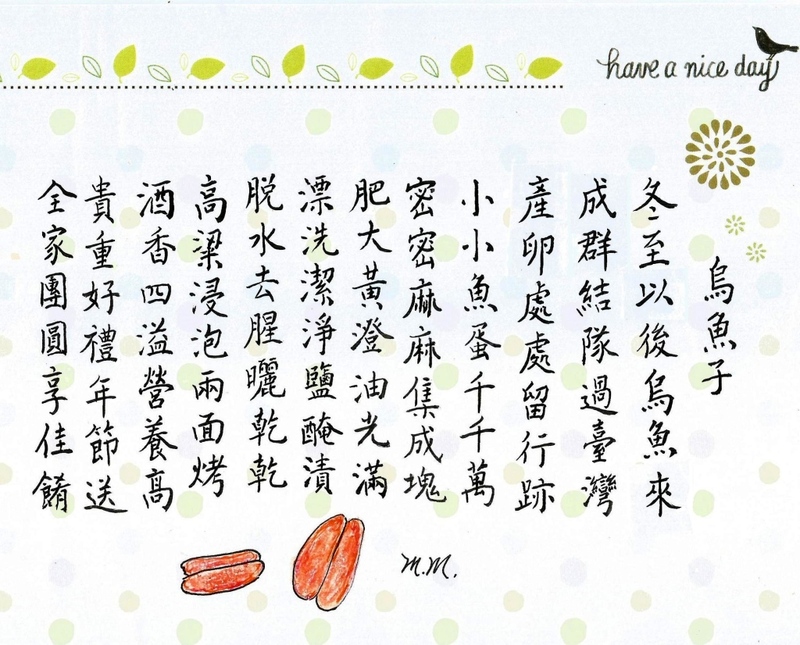 have a nice day
烏魚子
冬至以後烏魚來
成群結隊過臺灣
產卵處處留行跡
小小魚蛋千千萬
密密麻麻集成塊
肥大黃澄油光滿
漂洗潔淨鹽醃漬
脫水去腥曬乾乾
高梁浸泡兩面烤
酒香四溢營養高
貴重好禮年節送
全家團圓享佳餚
M.M.